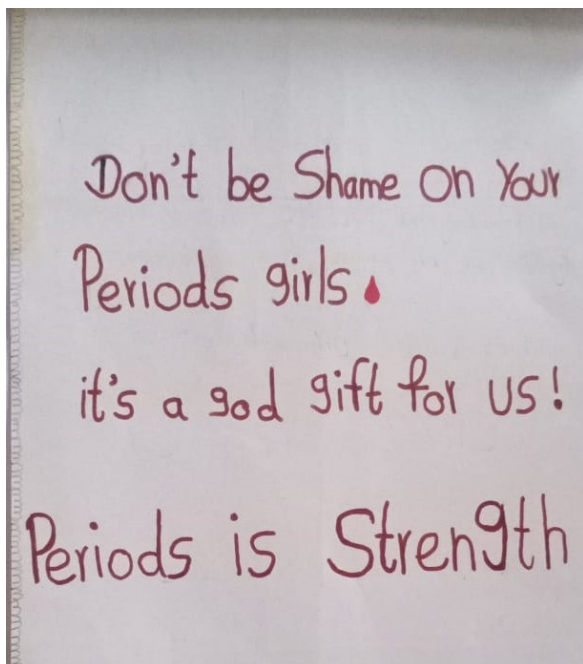 Don't be Shame on Your
Periods girls.
it's a god gift for us!
Periods is Strength